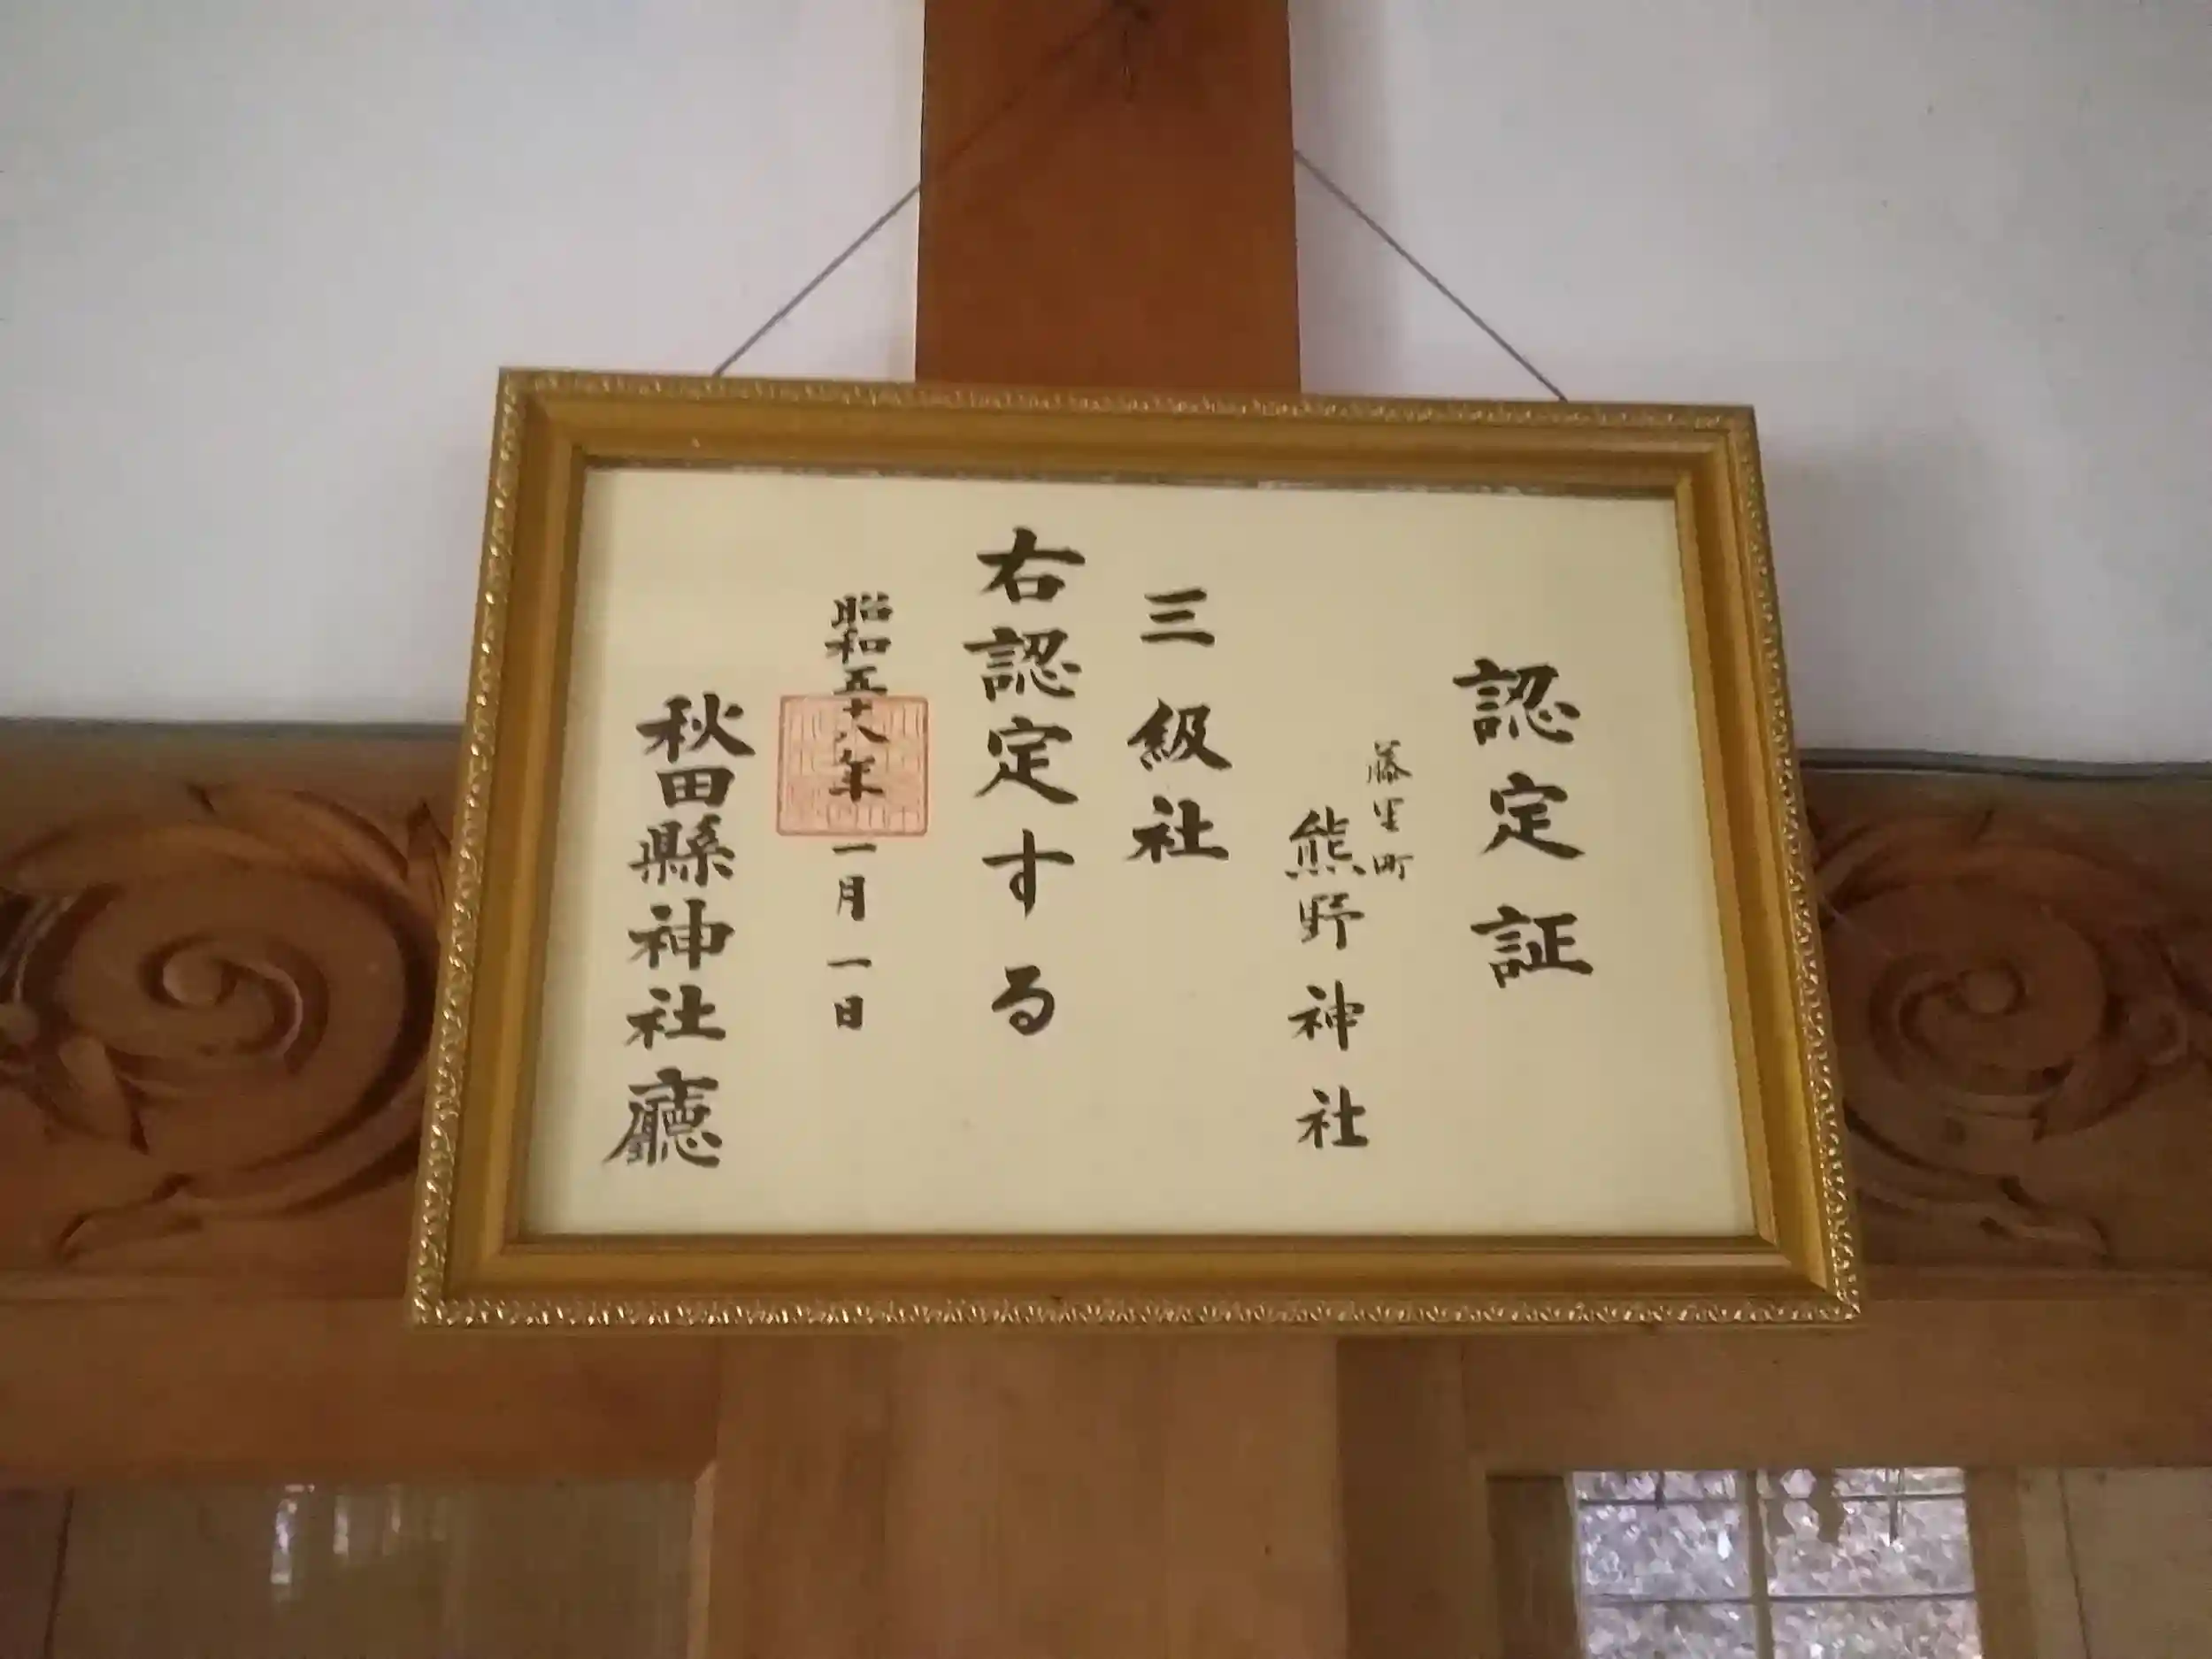 認定証
藤里町
熊野神社
三級社
右認定する
昭和五十八年一月一日
秋田縣神社廳